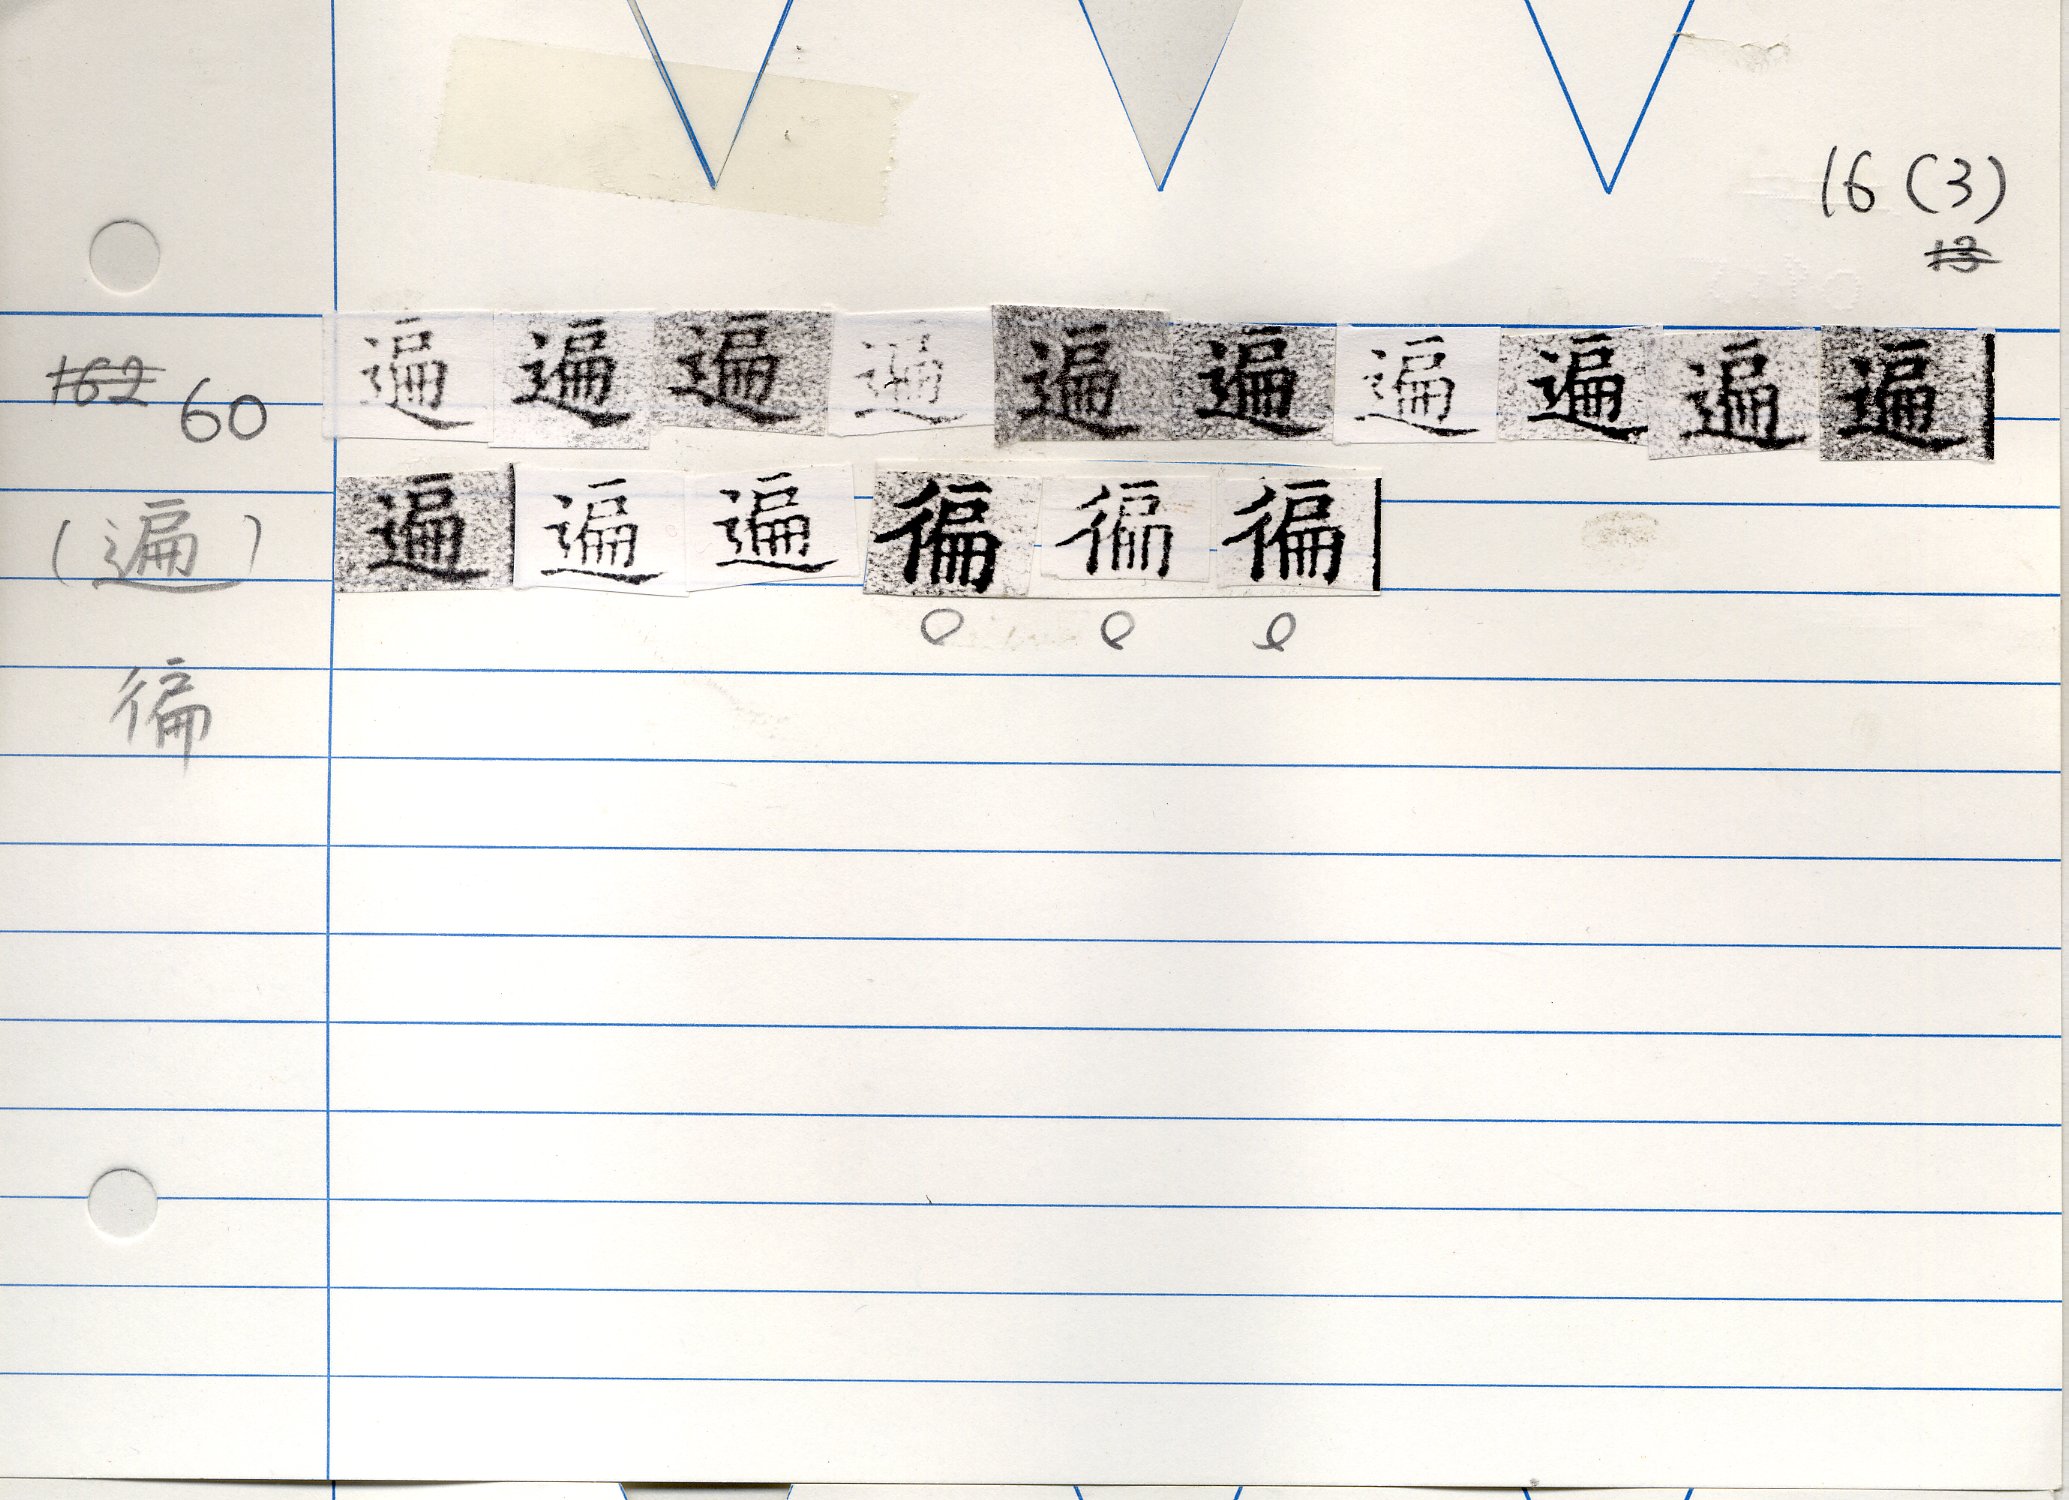 16 (3)
13
162 60
遍遍遍遍遍遍遍遍遍遍
(遍)
遍遍遍徧徧徧
徧